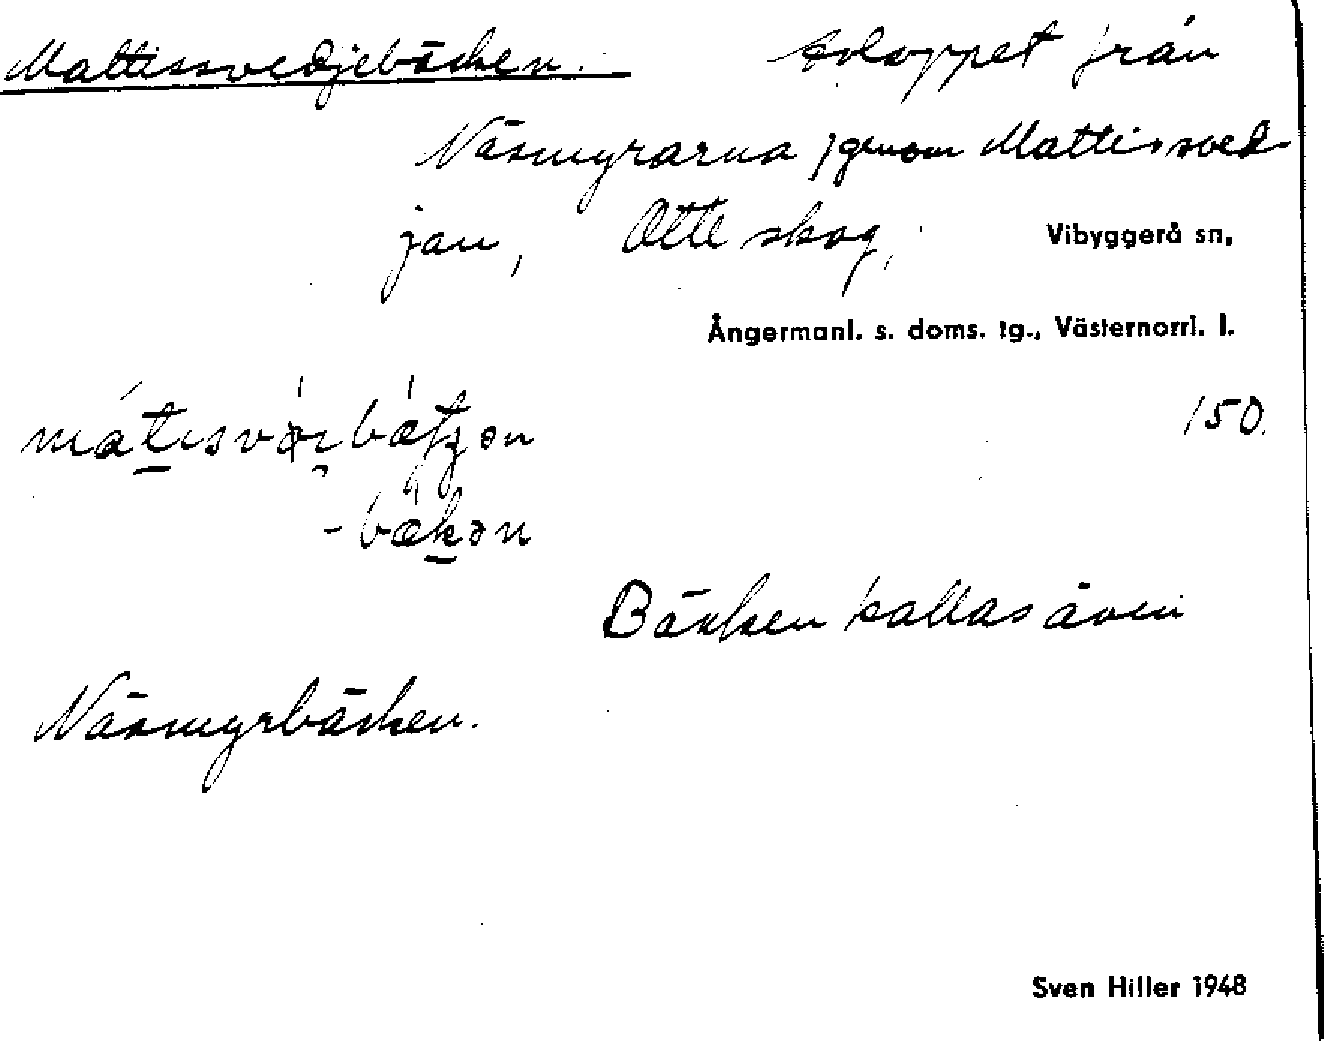 Mattissvedjebäcken. Avloppet från
Näsmyrarna genom Mattissved-
jan, Ötte skog, Vibyggerå sn,
Ångermanl. s. doms. tg., Västernorrl. l.
150.
-bækən
Bäcken kallas även
Näsmyrbäcken.
Sven Hiller 1948